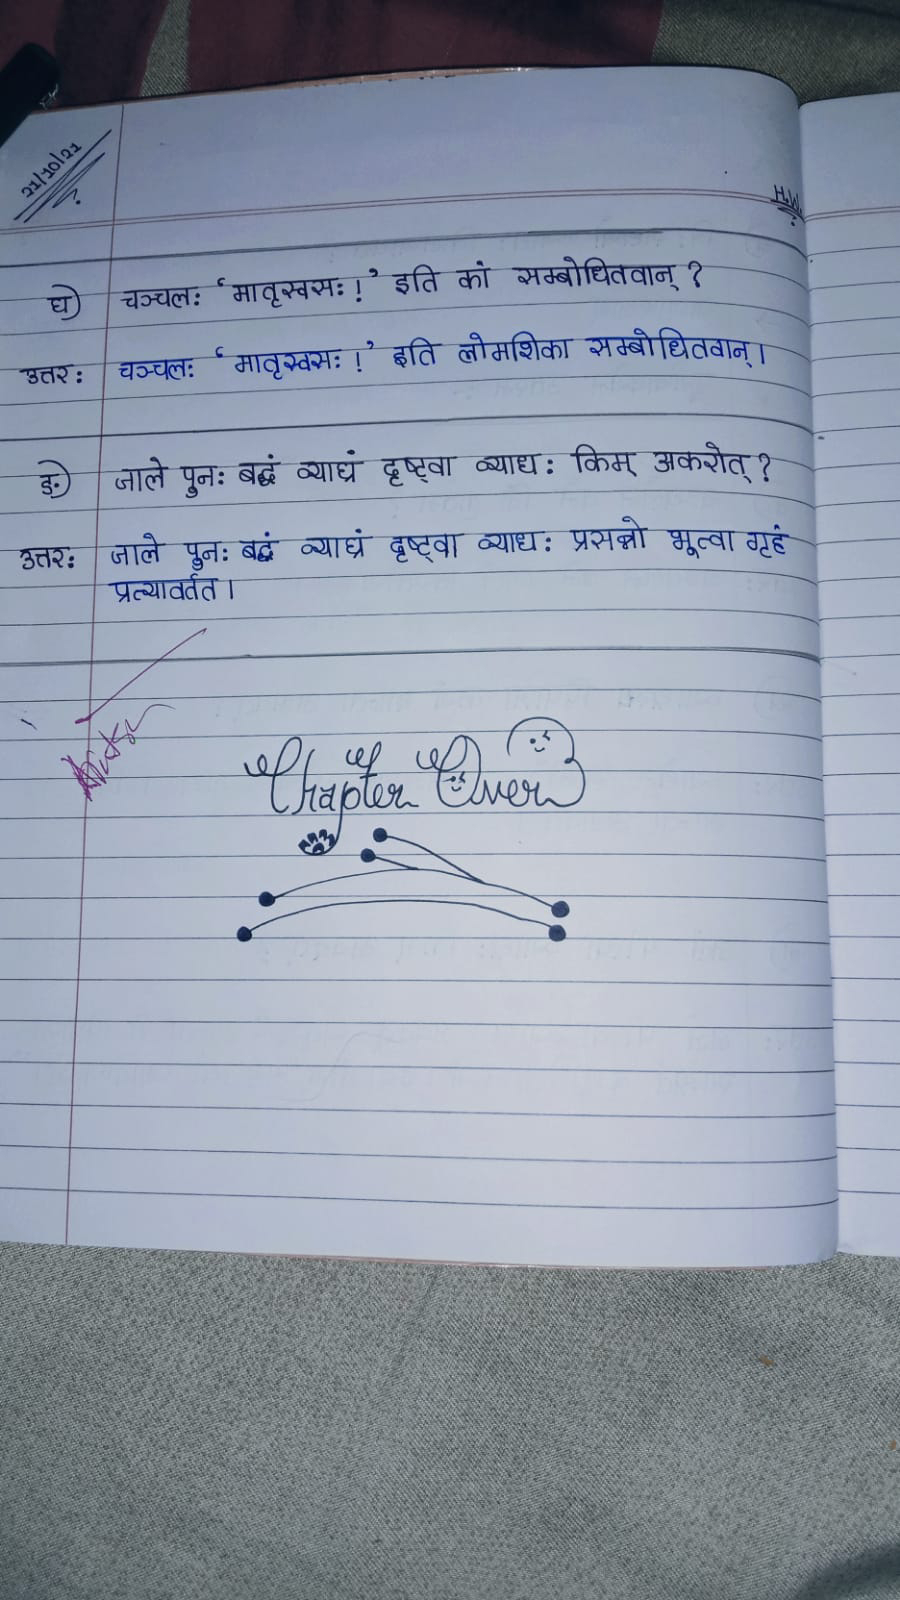 21/10/21
H.W.
घ) चञ्चलः ‘मातृस्वसः!’ इति कां सम्बोधितवान् ?
उत्तरः चञ्चलः ‘मातृस्वसः!’ इति लोमशिका सम्बोधितवान्।
ङ) जाले पुनः बद्धं व्याघ्रं दृष्ट्वा व्याधः किम् अकरोत् ?
उत्तरः जाले पुनः बद्धं व्याघ्रं दृष्ट्वा व्याधः प्रसन्नो भूत्वा गृहं
प्रत्यावर्तत।
Chapter Over